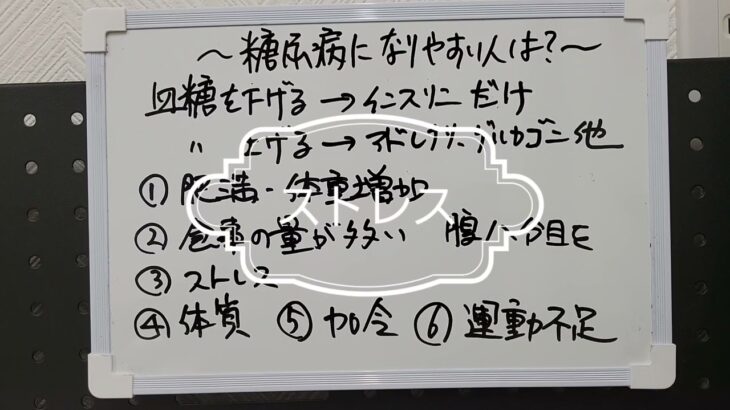 ～糖尿病になりやすい人は?～
血糖を下げる→インスリンだけ
〃 上げる→アドレナリン・グルカゴン他
① 肥満・体重増加
② 食事の量が多い 腹八分目を
ストレス
③ ストレス
④ 体質 ⑤ 加令 ⑥ 運動不足